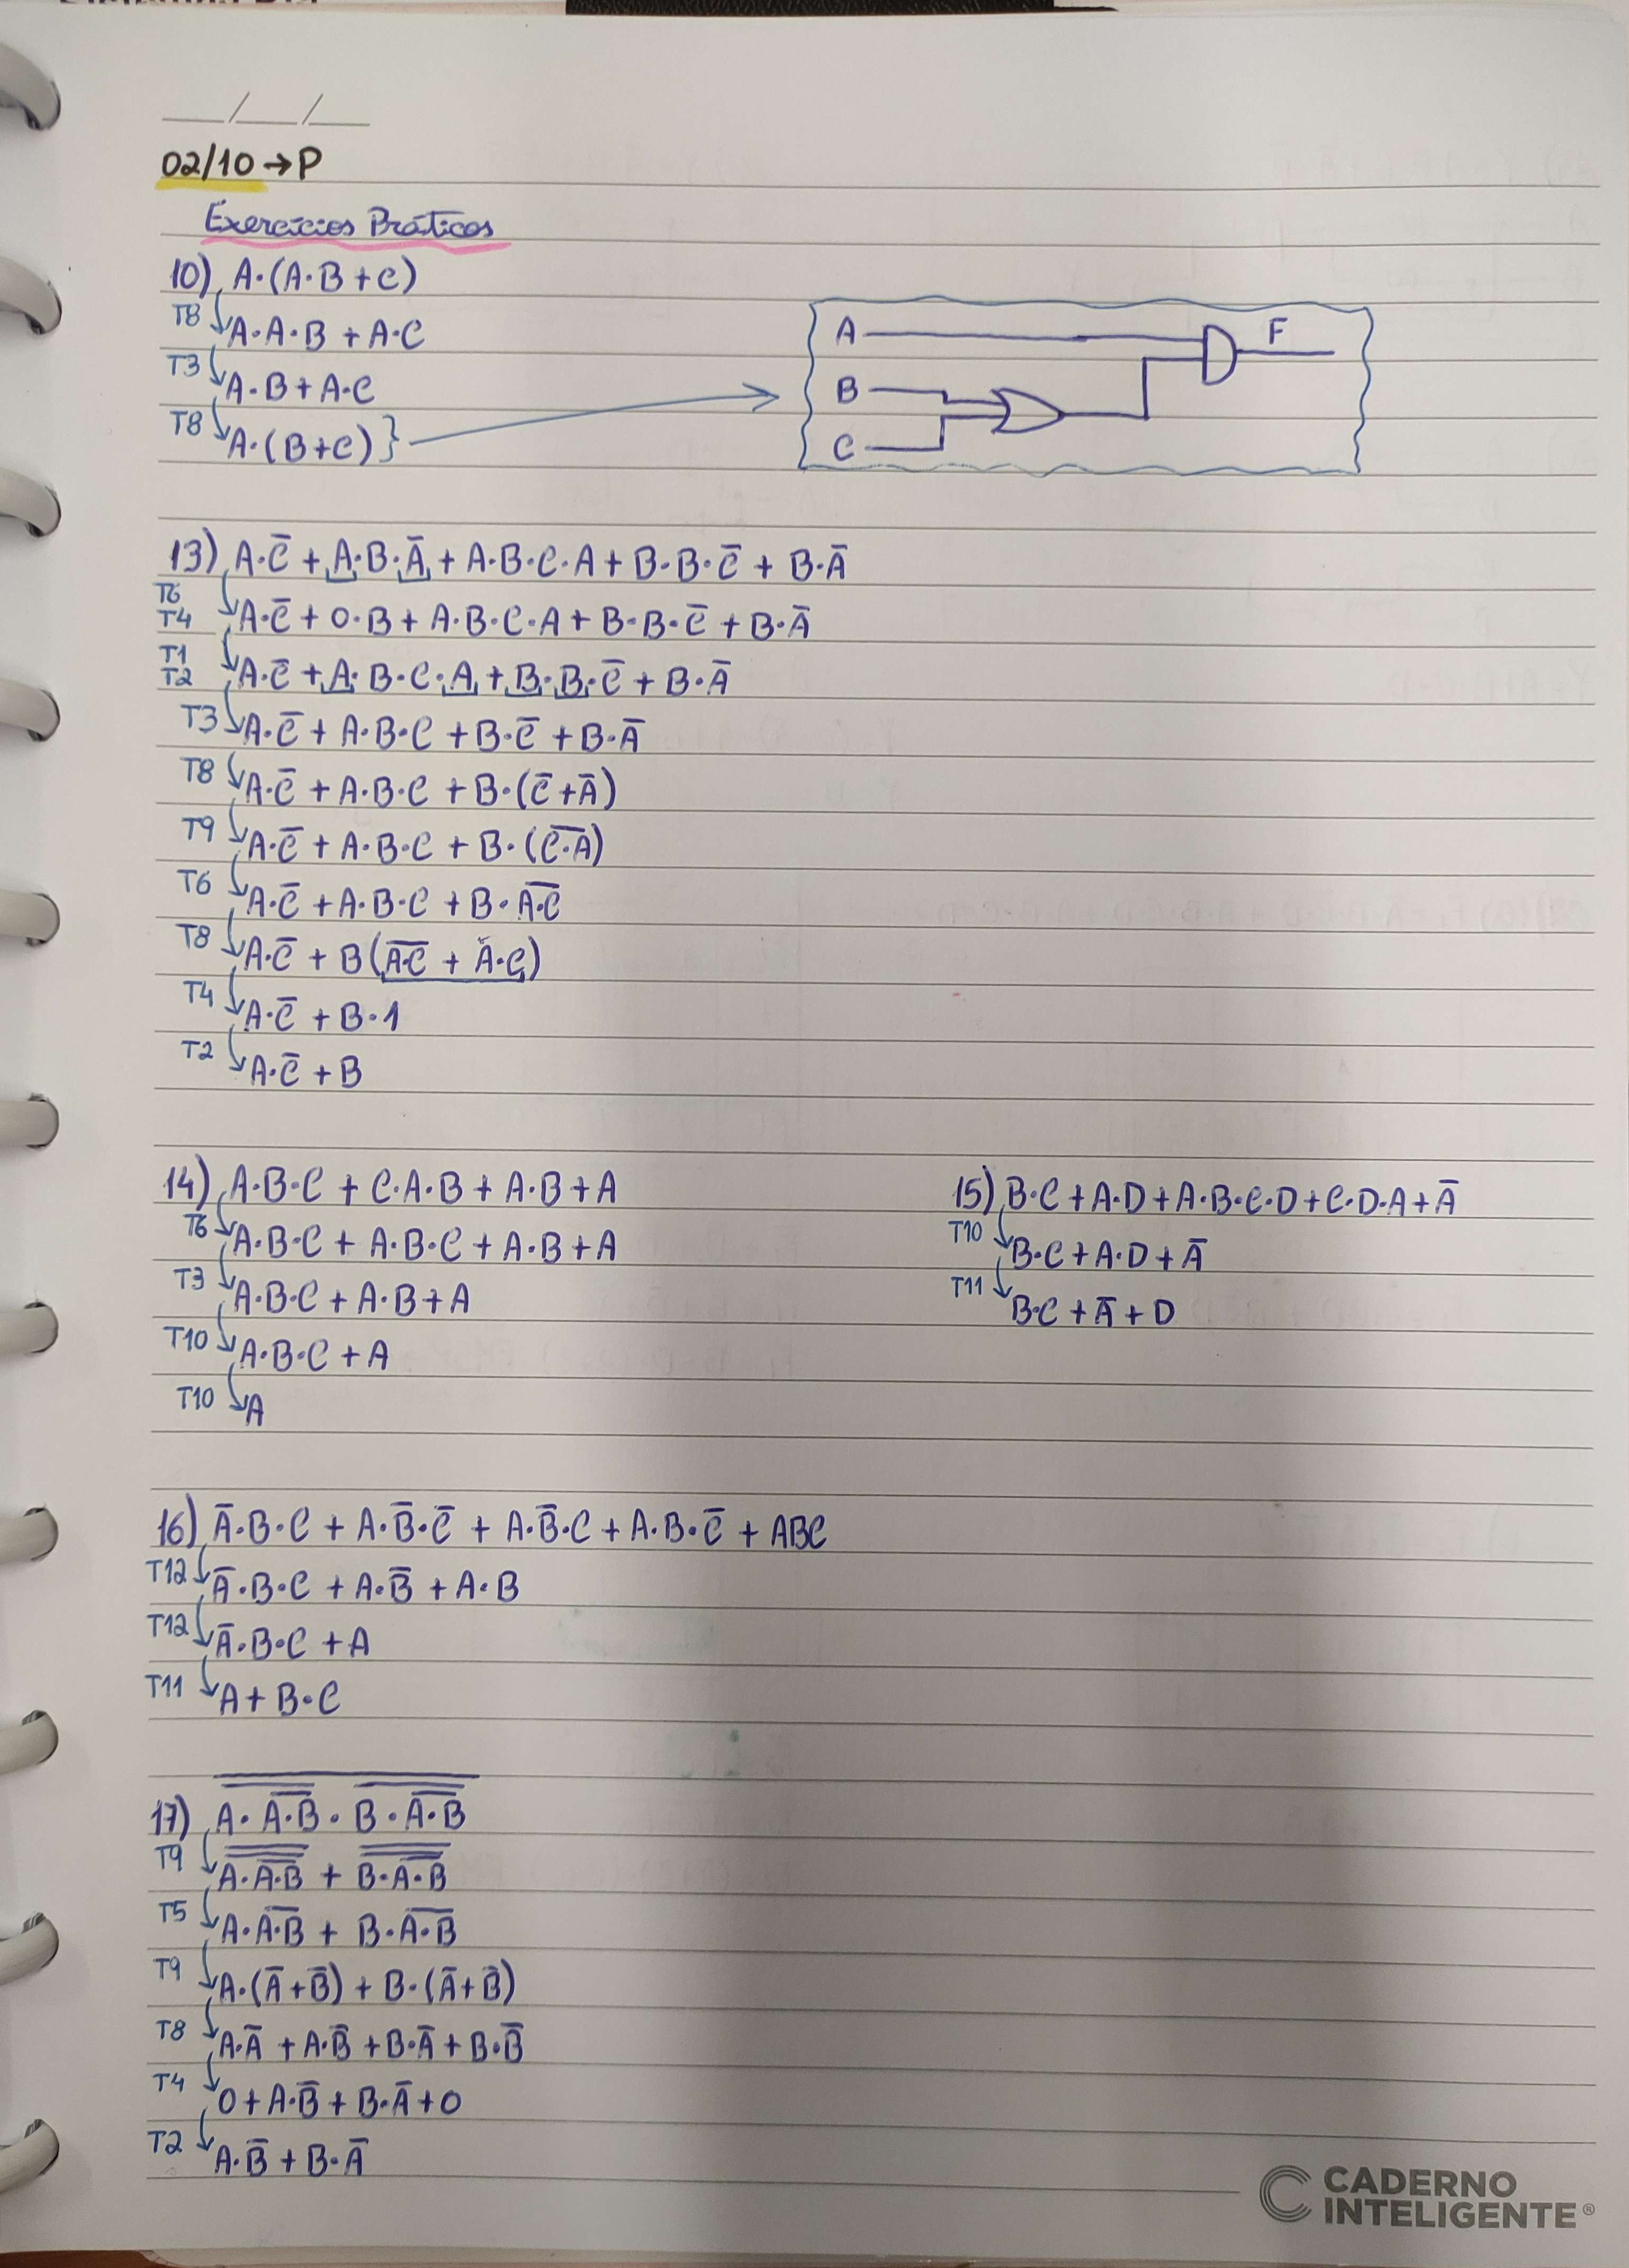 __/__/__
02/10 → P
Exercícios Práticos
10) A·(A·B+C)
T8 A·A·B + A·C
T3 A·B + A·C
T8 A·(B+C)}
A
B
C
F
13) A·C̅ + A·B·A̅ + A·B·C·A + B·B·C̅ + B·A̅
T6
T4 A·C̅ + 0·B + A·B·C·A + B·B·C̅ + B·A̅
T1
T2 A·C̅ + A·B·C·A + B·B·C̅ + B·A̅
T3 A·C̅ + A·B·C + B·C̅ + B·A̅
T8 A·C̅ + A·B·C + B·(C̅+A̅)
T9 A·C̅ + A·B·C + B·(C̅·̅A̅)
T6 A·C̅ + A·B·C + B·A̅·̅C̅
T8 A·C̅ + B(A̅·̅C̅ + A·C)
T4 A·C̅ + B·1
T2 A·C̅ + B
14) A·B·C + C·A·B + A·B + A
T6 A·B·C + A·B·C + A·B + A
T3 A·B·C + A·B + A
T10 A·B·C + A
T10 A
15) B·C + A·D + A·B·C·D + C·D·A + A̅
T10 B·C + A·D + A̅
T11 B·C + A̅ + D
16) A̅·B·C + A·B̅·C̅ + A·B̅·C + A·B·C̅ + ABC
T12 A̅·B·C + A·B̅ + A·B
T12 A̅·B·C + A
T11 A + B·C
17) \overline{\overline{A·\overline{A·B}}·\overline{B·\overline{A·B}}}
T9 \overline{\overline{A·\overline{A·B}}} + \overline{\overline{B·\overline{A·B}}}
T5 A·\overline{A·B} + B·\overline{A·B}
T9 A·(A̅+B̅) + B·(A̅+B̅)
T8 A·A̅ + A·B̅ + B·A̅ + B·B̅
T4 0 + A·B̅ + B·A̅ + 0
T2 A·B̅ + B·A̅
CADERNO
INTELIGENTE®